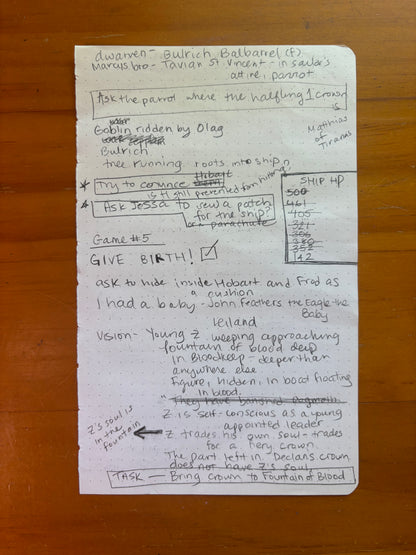 dwarven - Bulrich Balbarrel (F)
Marcus bro - Tavian St Vincent - in sailor's
attire, parrot
Ask the parrot where the halfling 1 crown
is
Goblin ridden by Olag
Bulrich
Matthias
of
Tiranas
tree running roots into ship
Try to convince Hobart
is it still prevented from hitting
Ask Jessa to sew a patch
for the ship?
or a parachute
SHIP HP
500
461
405
321
306
380
352
142
Game #5
GIVE BIRTH!
ask to hide inside Hobart and Frod as
a cushion
I had a baby - John Feathers the Eagle the
Baby
Leiland
Vision - Young Z weeping approaching
fountain of blood deep
in Bloodkeep - deeper than
anywhere else
Figure, hidden, in boat floating
in blood.
"They have banished
Z is self-conscious as a young
appointed leader
Z's soul is
in the
fountain
Z trades his own soul - trades
for a fiery crown.
The part left in - Declan's crown
does not have Z's soul
TASK — Bring crown to Fountain of Blood